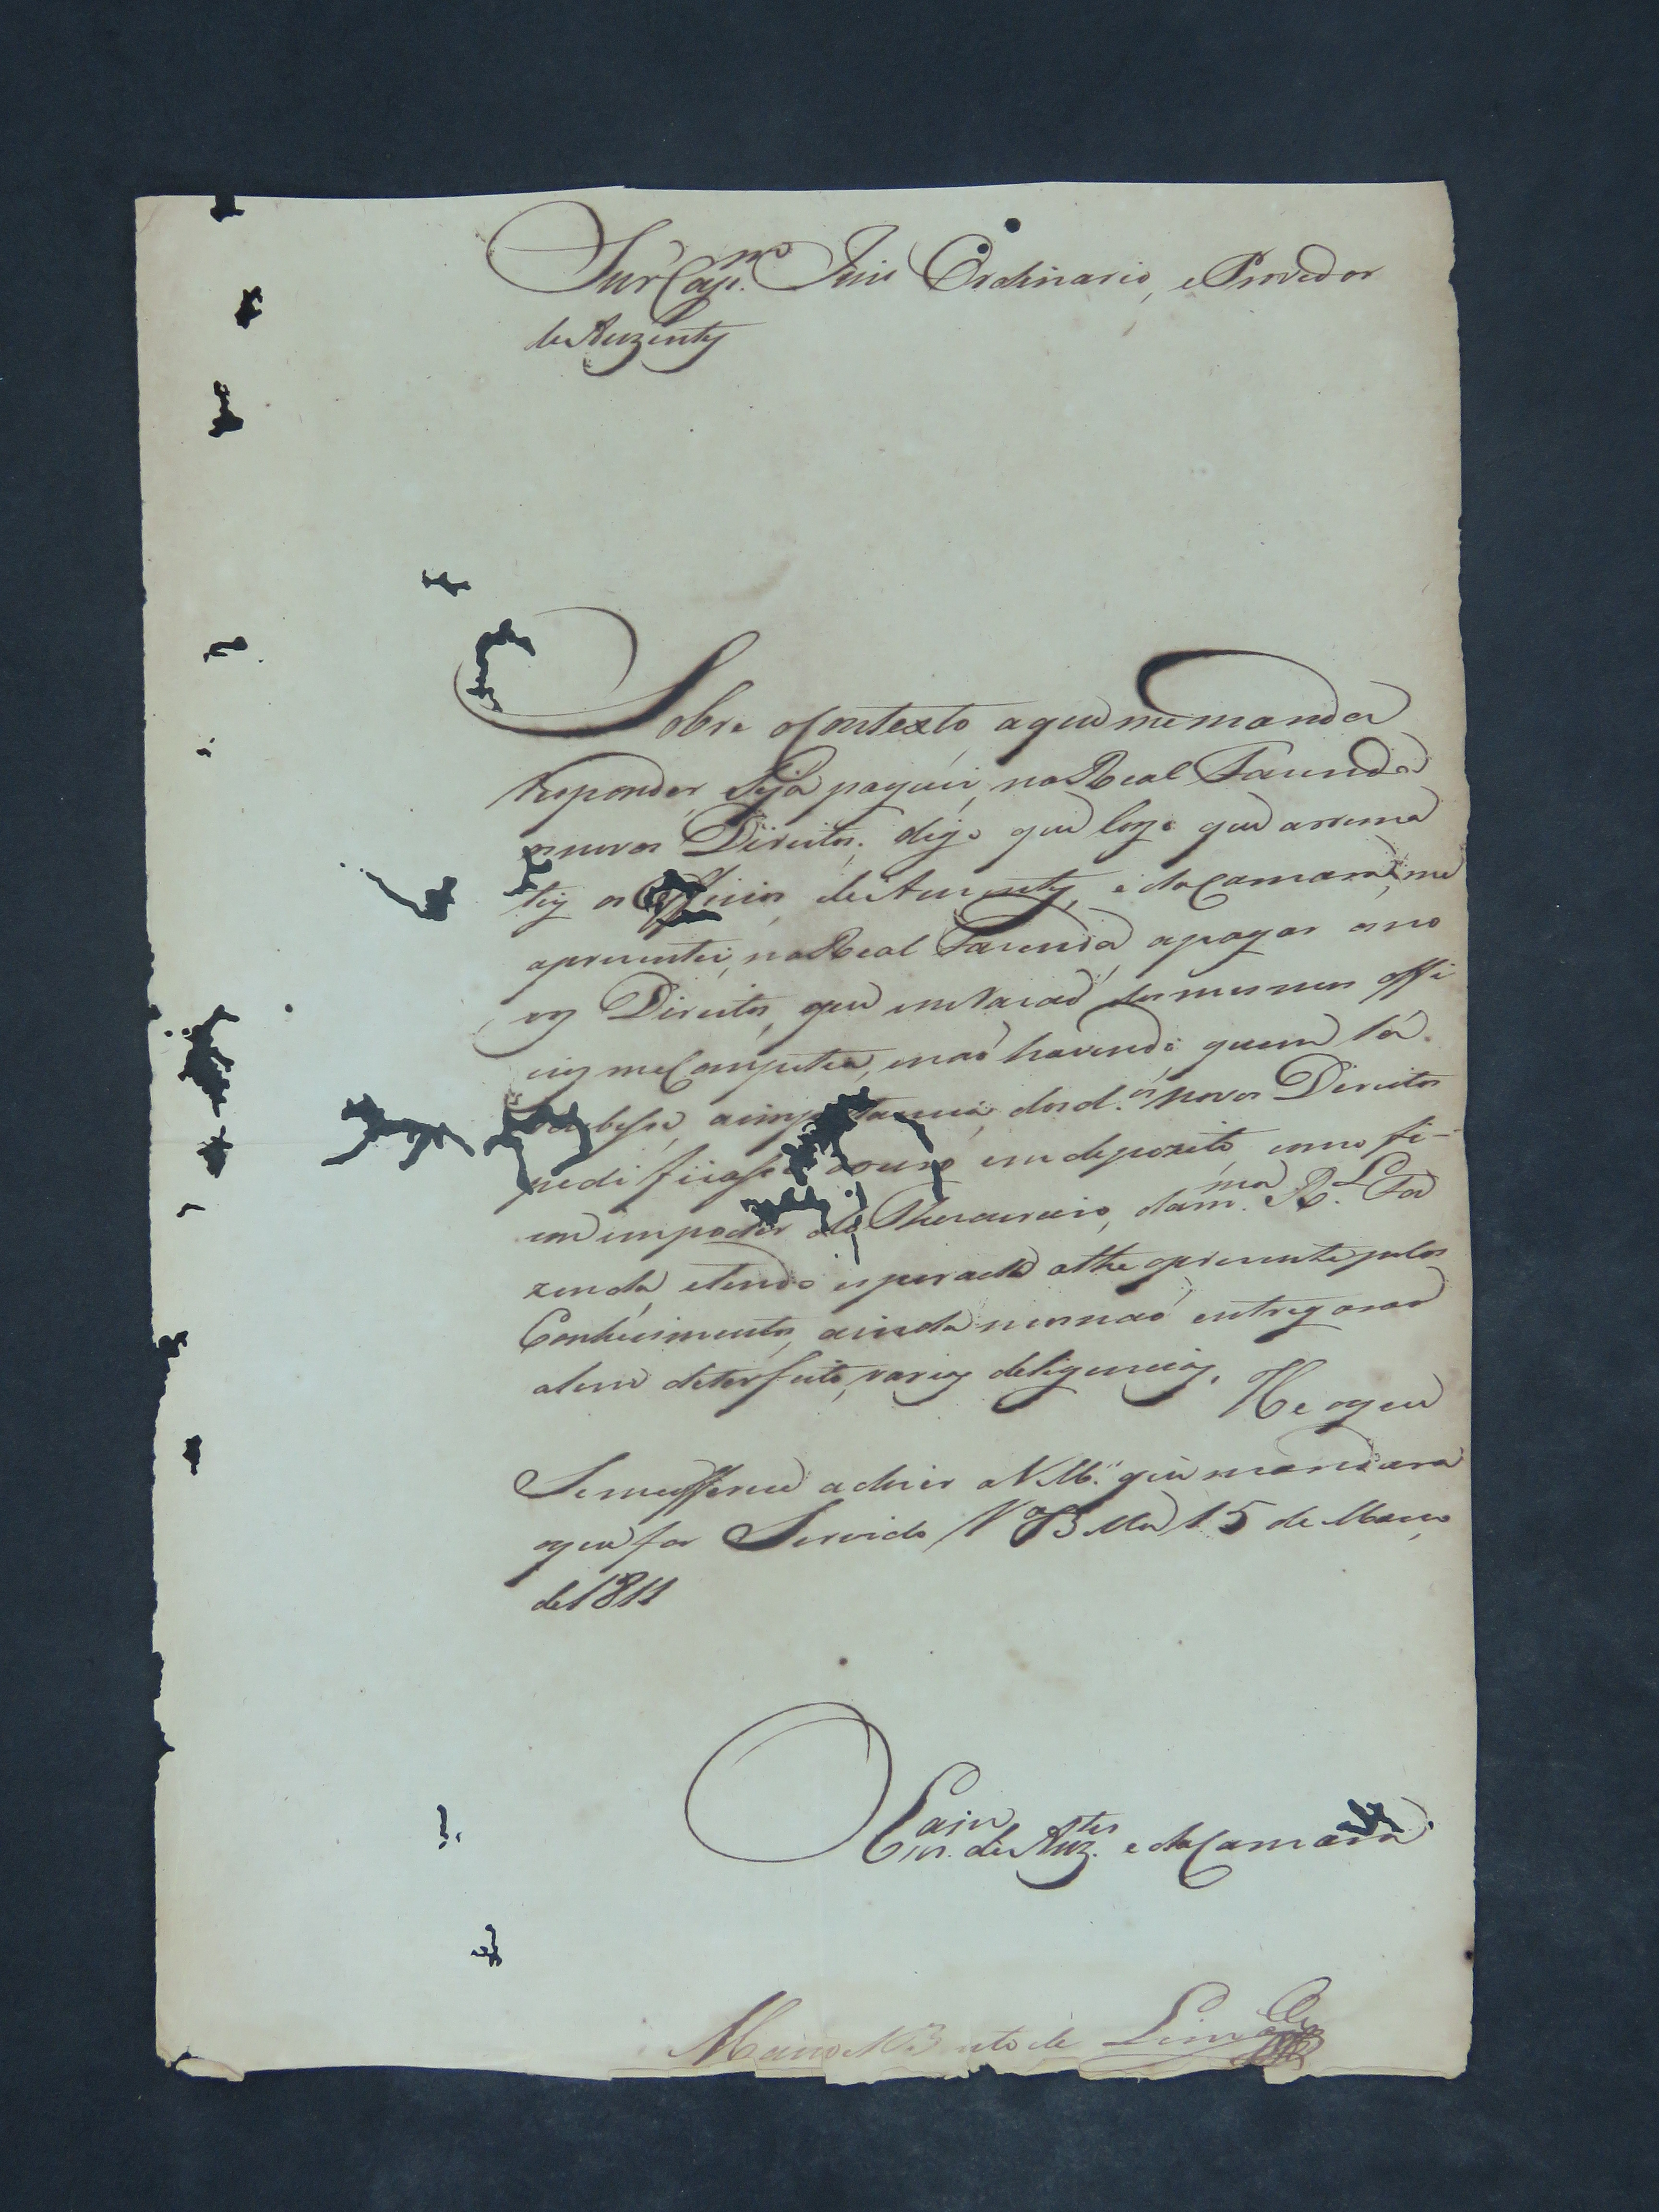 Snr Cap.mo Juis Ordinario, e Provedor
de Auzentes
Sobre o Contexto, a que me manda
responder, Se ja paguei, na Real Fazenda
os novos Direitos; digo que logo que arrema
tey os Officios de Auzentes, e da Camara, me
aprezentei, na Real Fazenda, a pagar os no
vos Direitos, que em razaõ dos mesmos offi
cios me Competia, e naõ havendo quem la
Soubesse, a importancia, dos d.os novos Direitos
pedi ficasse o ouro em depozito como fi-
cou em poder do Thezoureiro, da m.ma R.L Fa
zenda, e tendo esperado athe o prezente pelos
Conhecimentos, ainda mos naõ entregaraõ
alem de ter feito, varias deligencias. He o que
Se meofferece a dizer a V.M.ce que mandara
o que for Servido V B Ma 15 de Março
de 1811
O Escr.am de Auz.tes e da Camara
Manoel B nto de Lim